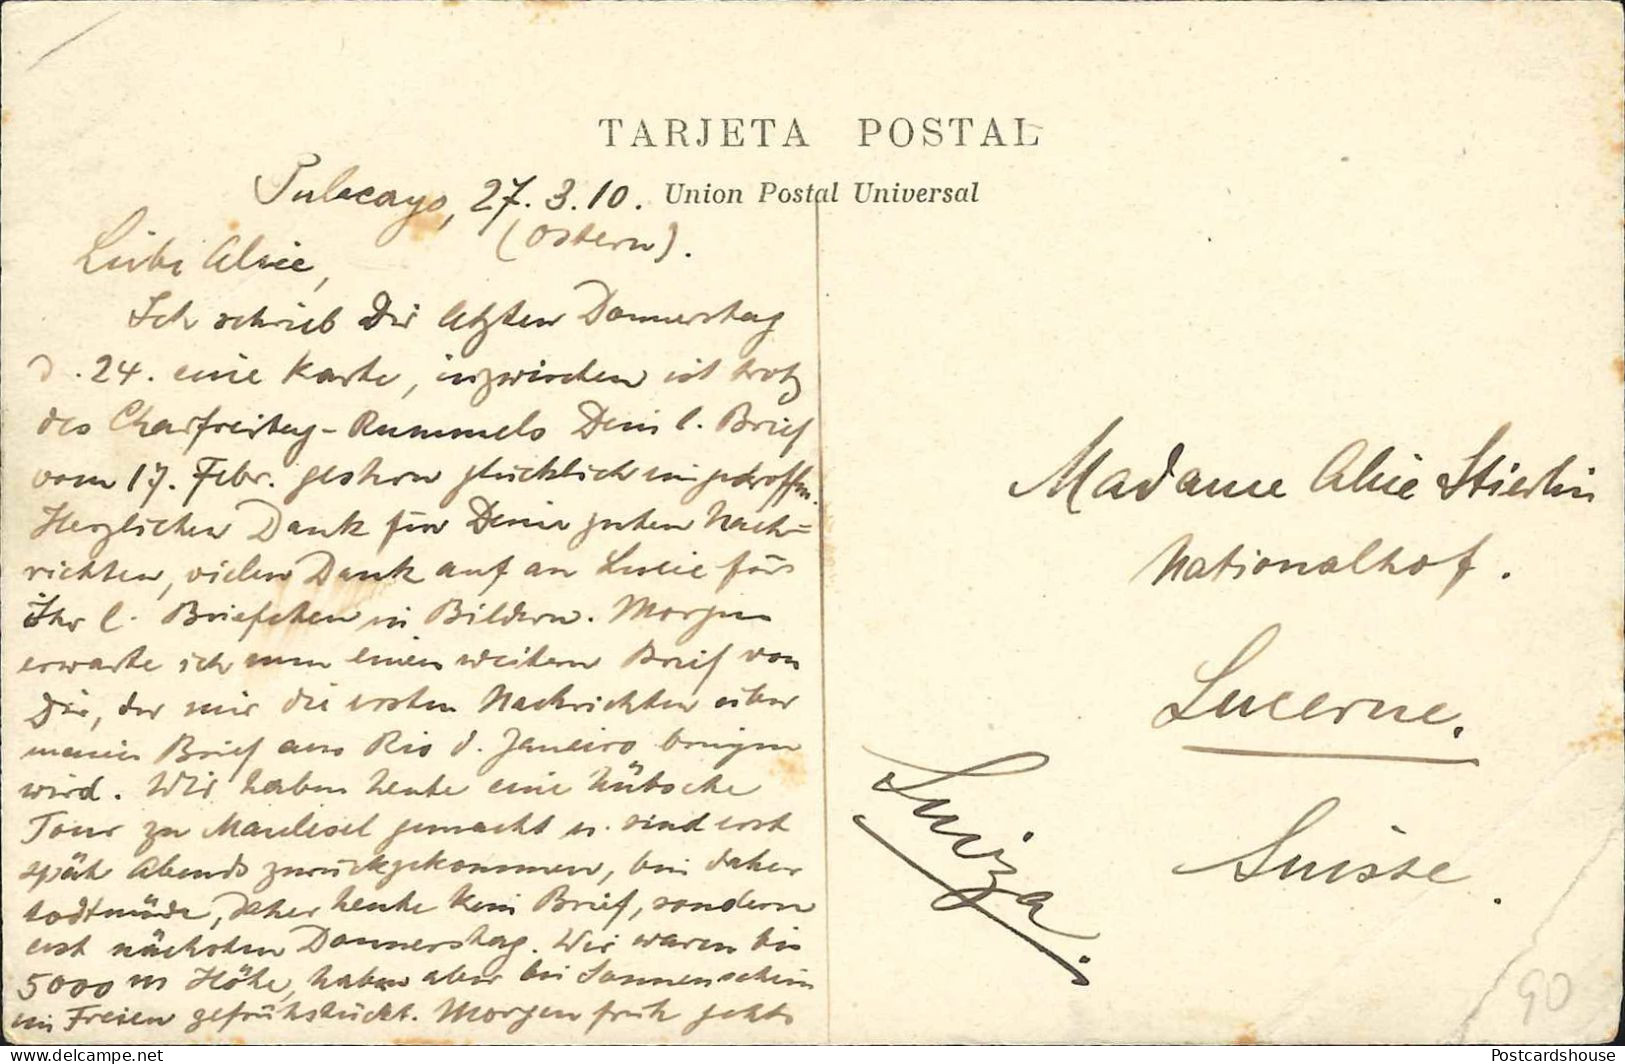 TARJETA POSTAL
Union Postal Universal
Pulacayo, 27. 3. 10.
(Ostern).
Liebe Alice,
Ich schrieb Dir letzten Donnerstag
d. 24. eine Karte, inzwischen ist trotz
des Charfreitag-Rummels Dein l. Brief
vom 17. Febr. gestern glücklich eingetroffen.
Herzlichen Dank für Deine guten Nach=
richten, vielen Dank auf an Lucie für
Ihr l. Briefchen in Bildern. Morgen
erwarte ich nun einen weitern Brief von
Dir, der mir die ersten Nachrichten über
meinen Brief aus Rio d. Janeiro bringen
wird. Wir haben heute eine hübsche
Tour zu Maulesel gemacht u. sind erst
spät Abends zurückgekommen, bin daher
todtmüde, daher heute kein Brief, sondern
erst nächsten Donnerstag. Wir waren bis
5000 m Höhe, haben aber bei Sonnenschein
im Freien gefrühstückt. Morgen früh gehts
Madame Alice Stierlin
Nationalhof.
Lucerne.
Suisse.
Suiza.
90
Postcardshouse
https://www.delcampe.net